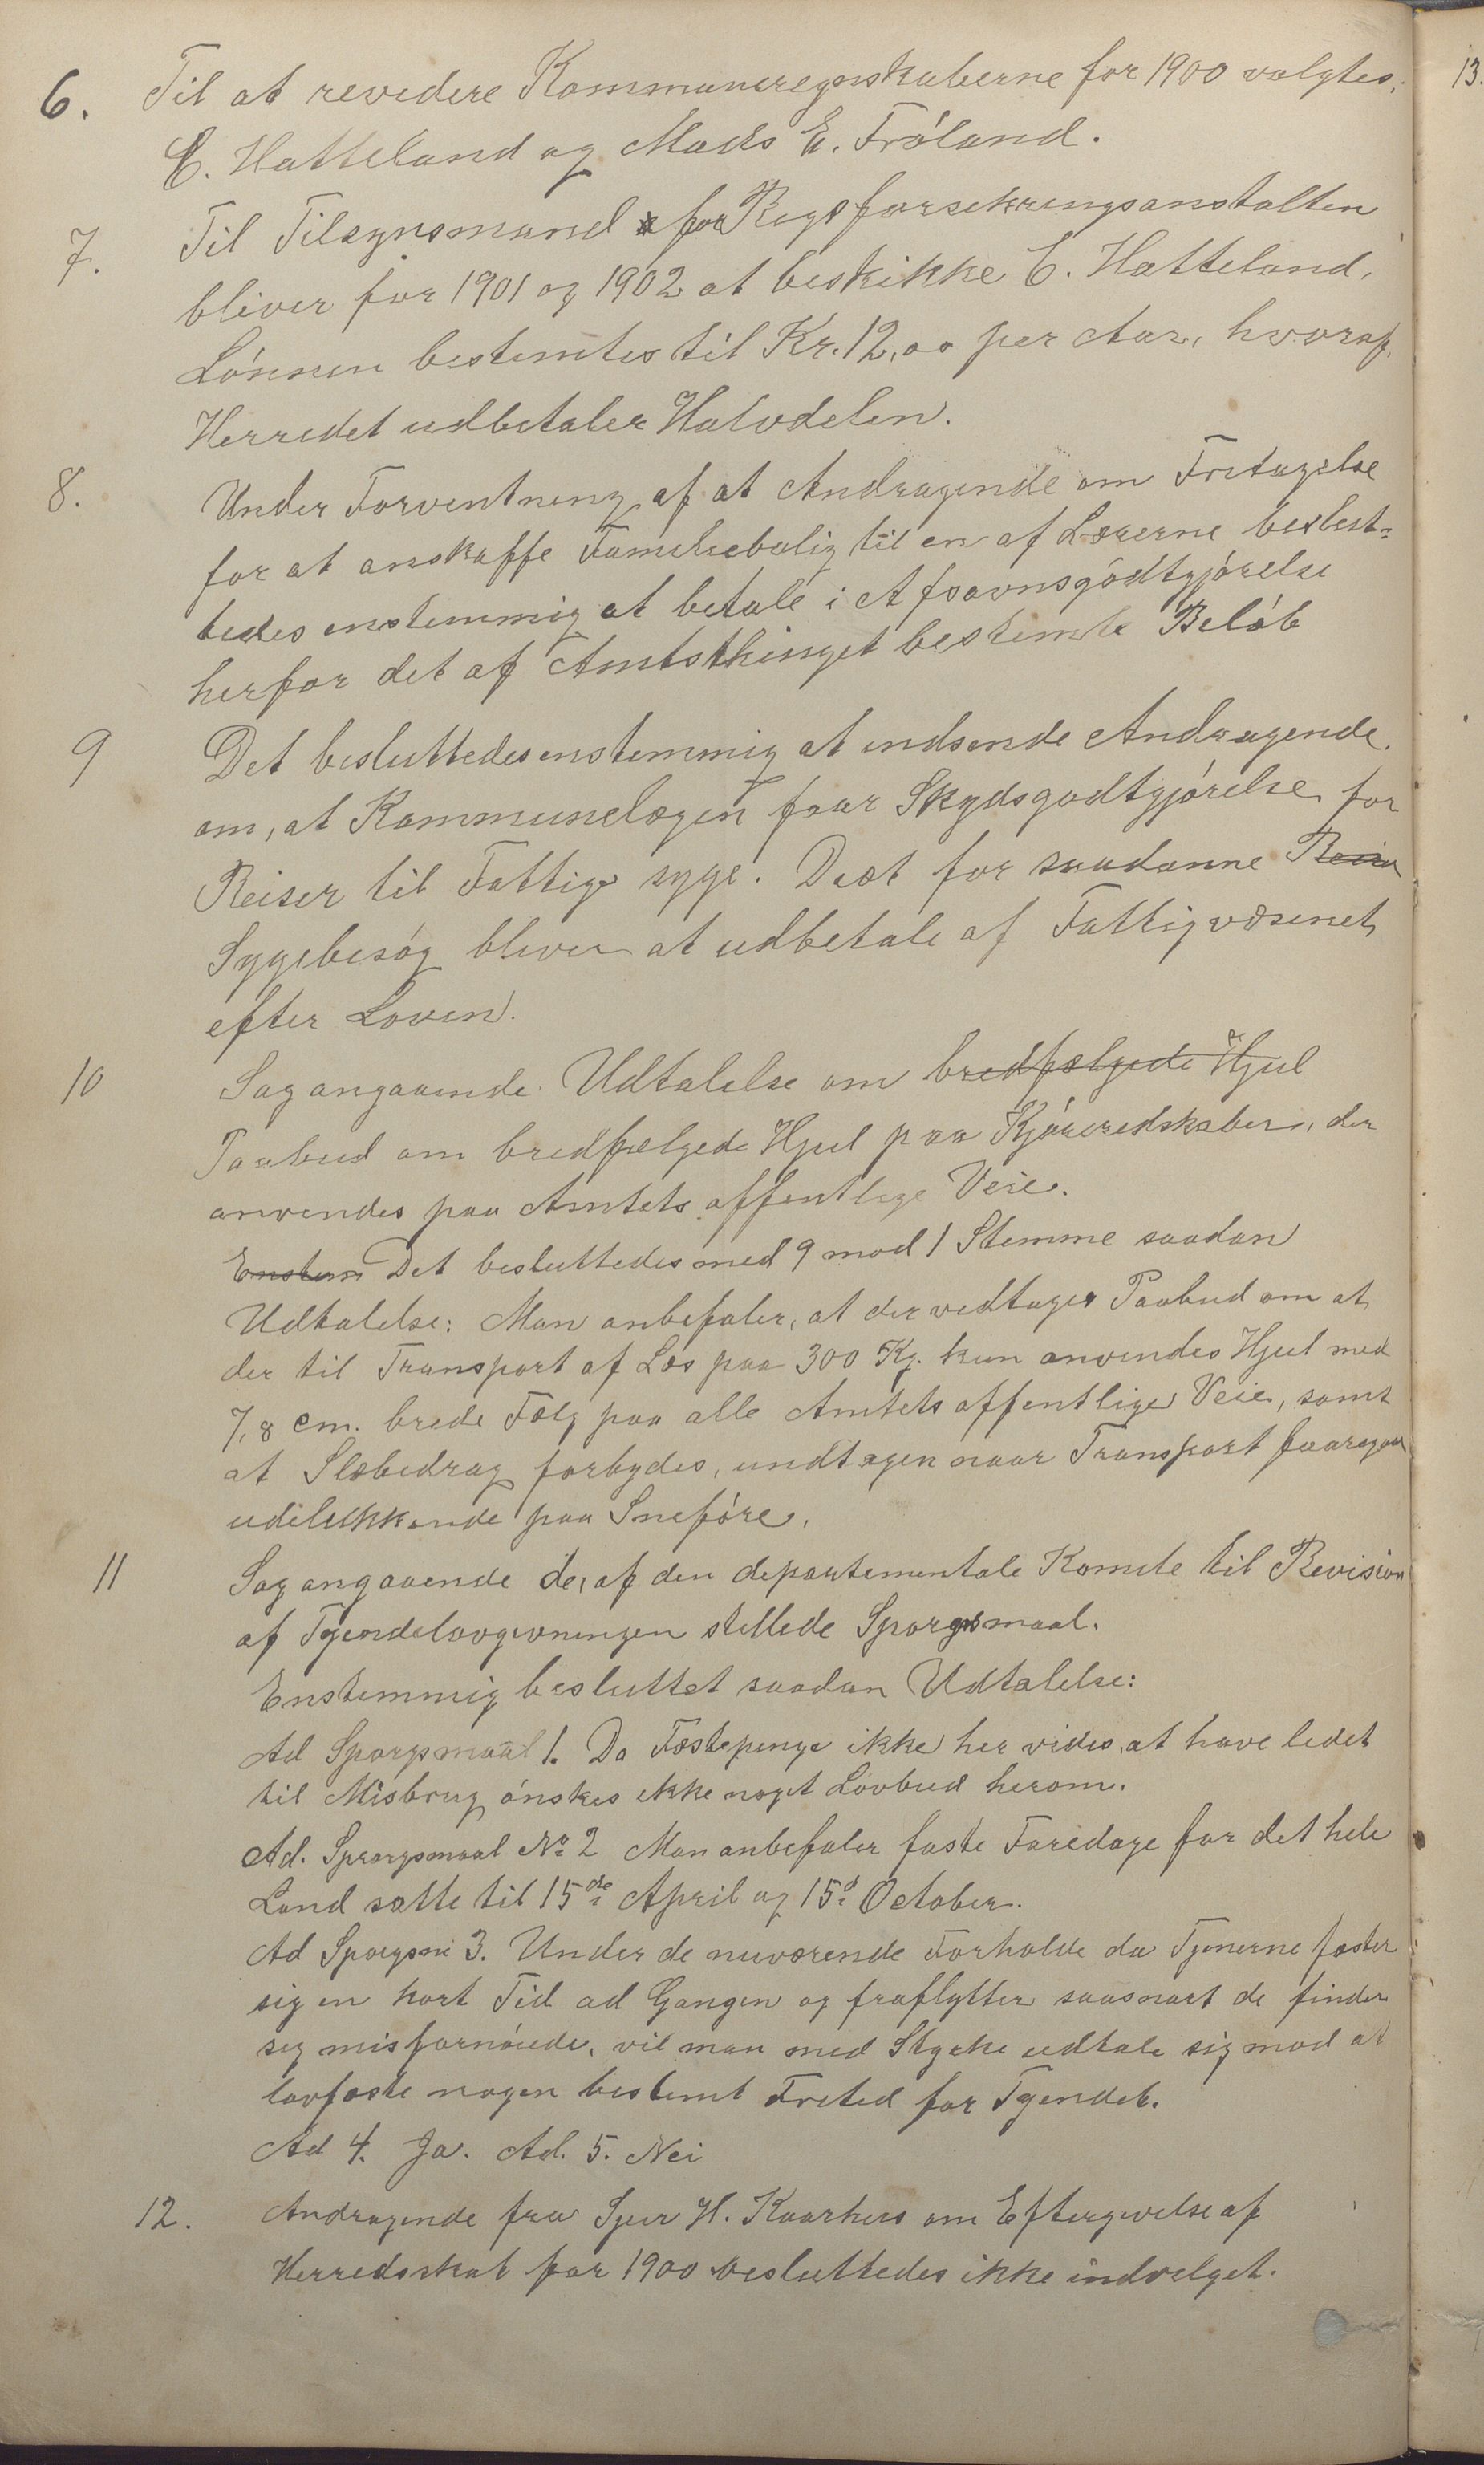 6. Til at revidere Kommuneregnskaberne for 1900 valgtes:
E. Hatteland og Mads E. Fróland.
7. Til Tilsynsmand for Rigsforsikringsanstalten
bliver for 1901 og 1902 at beskikke E. Hatteland.
Lónnen bestemtes til Kr. 12,00 per Aar, hvoraf
Herredet udbetaler Halvdelen.
8. Under Forventning af at Andragende om Fritagelse
for at anskaffe Familiebolig til en af Lærerne beslut-
tedes enstemmig at betale i Afsavnsgodtgjórelse
herfor det af Amtsthinget bestemte Belób
9 Det besluttedes enstemmig at indsende Andragende
om, at Kommunelægen faar Skydsgodtgjórelse for
Reiser til Fattige syge. Diæt for saadanne Reiser
Sygebesóg bliver at udbetale af Fattigvæsenet
efter Loven.
10 Sag angaaende Udtalelse om bredfælgede Hjul
Paabud om bredfælgede Hjul paa Kjóreredskaber, der
anvendes paa Amtets offentlige Veie.
Enstem Det besluttedes med 9 mod 1 Stemme saadan
Udtalelse: Man anbefaler, at der vedtages Paabud om at
der til Transport af Læs paa 300 Kg. kun anvendes Hjul med
7,8 cm. brede Fælg paa alle Amtets offentlige Veie, samt
at Slæbedrag forbydes, undtagen naar Transport foaregaar
udelukkende paa Sneföre.
11 Sag angaaende de, af den departementale Komite til Revision
af Tyendelovgivningen stillede Sporgsmaal.
Enstemmig besluttet saadan Udtalelse:
Ad Sporgsmaal 1. Da Fæstepenge ikke her vides at have ledet
til Misbrug ónskes ikke noget Lovbud herom.
Ad. Sporgsmaal No 2 Man anbefaler faste Faredage for det hele
Land satte til 15de April og 15d October.
Ad Sporgsm 3. Under de nuværende Forholde da Tjenerne fæster
sig en kort Tid ad Gangen og fraflytter saasnart de finder
sig misfornóiede, vil man med Styrke udtale sig mod at
lovfæste nogen bestemt Fritid for Tyendet.
Ad 4. Ja. Ad. 5. Nei
12. Andragende fra Sjur H. Kaarhus om Eftergivelse af
Herredsskat for 1900 besluttedes ikke indvilget.
13.